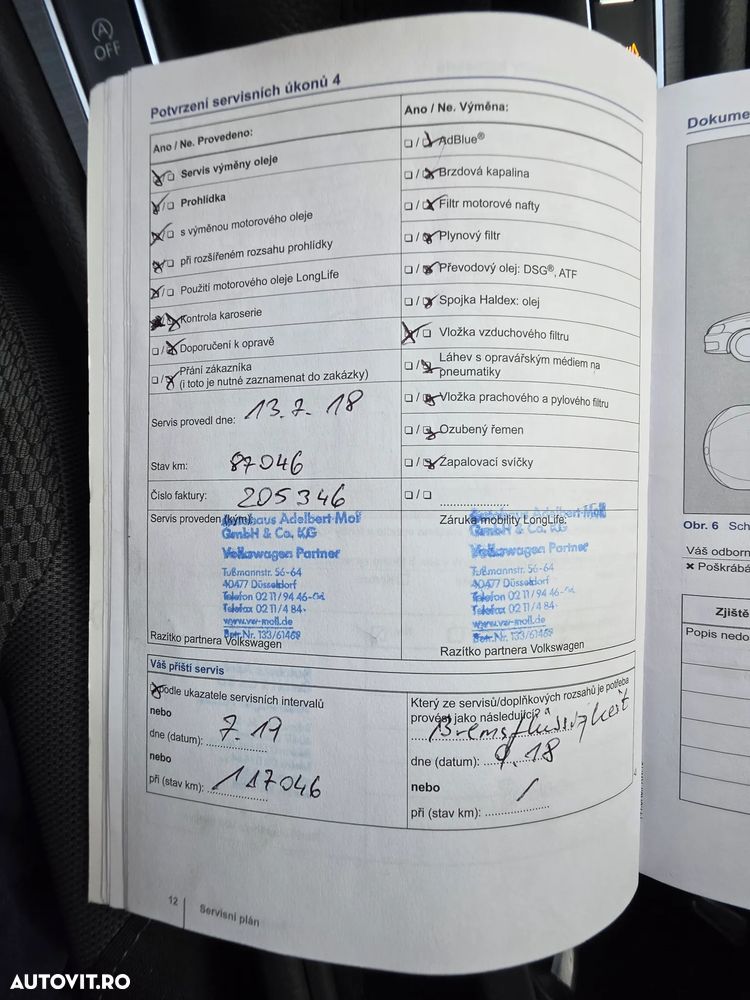 OFF
Potvrzení servisních úkonů 4
Ano / Ne. Provedeno:
Servis výměny oleje
Prohlídka
s výměnou motorového oleje
při rozšířeném rozsahu prohlídky
Použití motorového oleje LongLife
Kontrola karoserie
Doporučení k opravě
Přání zákazníka
(i toto je nutné zaznamenat do zakázky)
Servis provedl dne: 13.7.18
Stav km: 87046
Číslo faktury: 205346
Servis proveden (kým):
Autohaus Adelbert Moll
GmbH & Co. KG
Volkswagen Partner
Tußmannstr. 56-64
40477 Düsseldorf
Telefon 02 11/94 46-
Telefax 02 11/4 84-
www.vw-moll.de
Betr.Nr. 133/61468
Razítko partnera Volkswagen
Ano / Ne. Výměna:
AdBlue®
Brzdová kapalina
Filtr motorové nafty
Plynový filtr
Převodový olej: DSG®, ATF
Spojka Haldex: olej
Vložka vzduchového filtru
Láhev s opravářským médiem na
pneumatiky
Vložka prachového a pylového filtru
Ozubený řemen
Zapalovací svíčky
Záruka mobility LongLife:
Autohaus Adelbert Moll
GmbH & Co. KG
Volkswagen Partner
Tußmannstr. 56-64
40477 Düsseldorf
Telefon 02 11/94 46-
Telefax 02 11/4 84-
www.vw-moll.de
Betr.Nr. 133/61468
Razítko partnera Volkswagen
Váš příští servis
podle ukazatele servisních intervalů
nebo
dne (datum): 7.19
nebo
při (stav km): 117046
Který ze servisů/doplňkových rozsahů je potřeba
provést jako následující?
Bremsflüssigkeit
dne (datum): 9.18
nebo
při (stav km): /
12 Servisní plán
Dokume
Obr. 6 Sch
Váš odborn
✖ Poškrábá
Zjiště
Popis nedo
AUTOVIT.RO